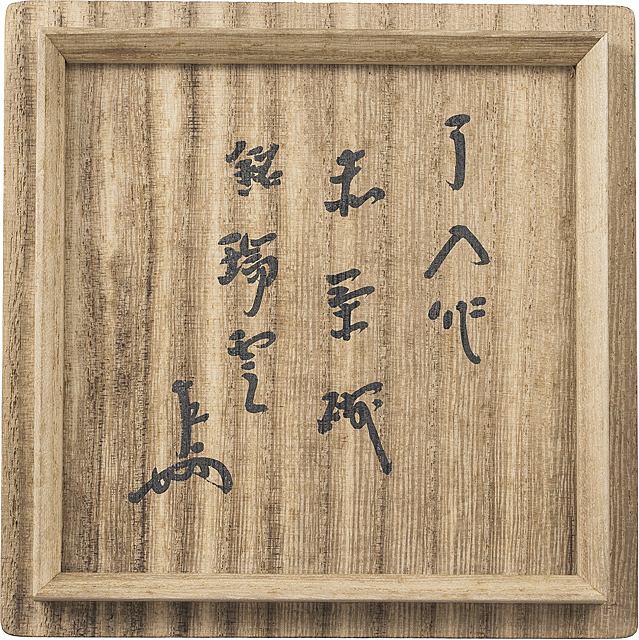 了入作
赤茶碗
銘 瑞雲